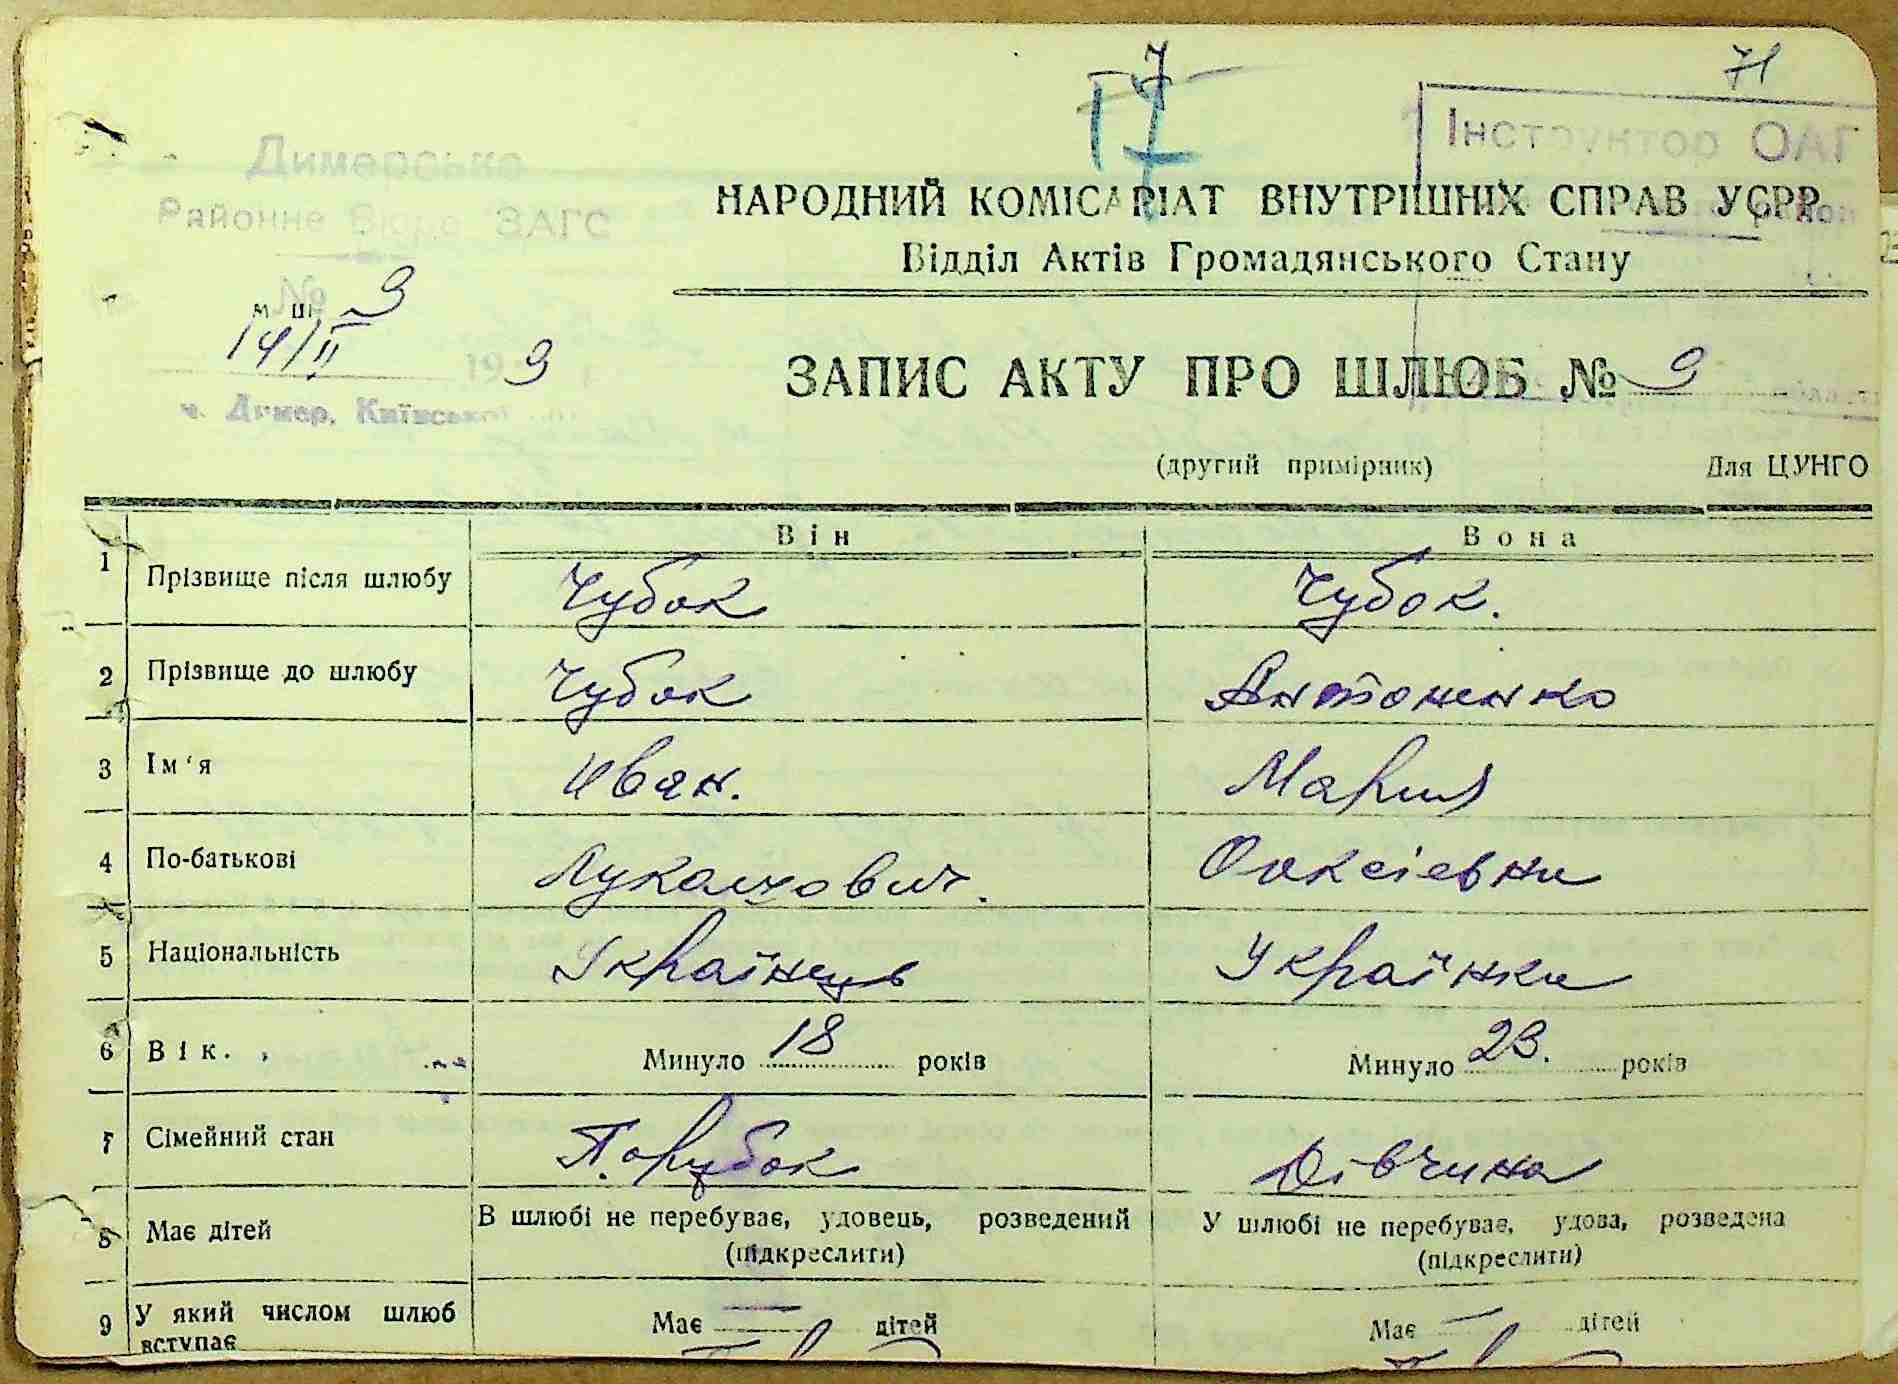 7
71
17
Інструктор ОАГ
Димерське
Районне Бюро ЗАГС
НАРОДНИЙ КОМІСАРІАТ ВНУТРІШНІХ СПРАВ УСРР
Відділ Актів Громадянського Стану
№ 9
14/II 19 9
с. Димер, Київської
ЗАПИС АКТУ ПРО ШЛЮБ № 9
(другий примірник) Для ЦУНГО
Він Вона
1 Прізвище після шлюбу Чубок Чубок.
2 Прізвище до шлюбу Чубок Антоненко
3 Ім'я Иван. Мария
4 По-батькові Лукашович. Олексієвна
5 Національність Українець Українка
6 Вік. Минуло 18 років Минуло 23. років
7 Сімейний стан Парубок Дівчина
8 Має дітей В шлюбі не перебуває, удовець, розведений У шлюбі не перебуває, удова, розведена
(підкреслити) (підкреслити)
9 У який числом шлюб Має — дітей Має — дітей
вступає